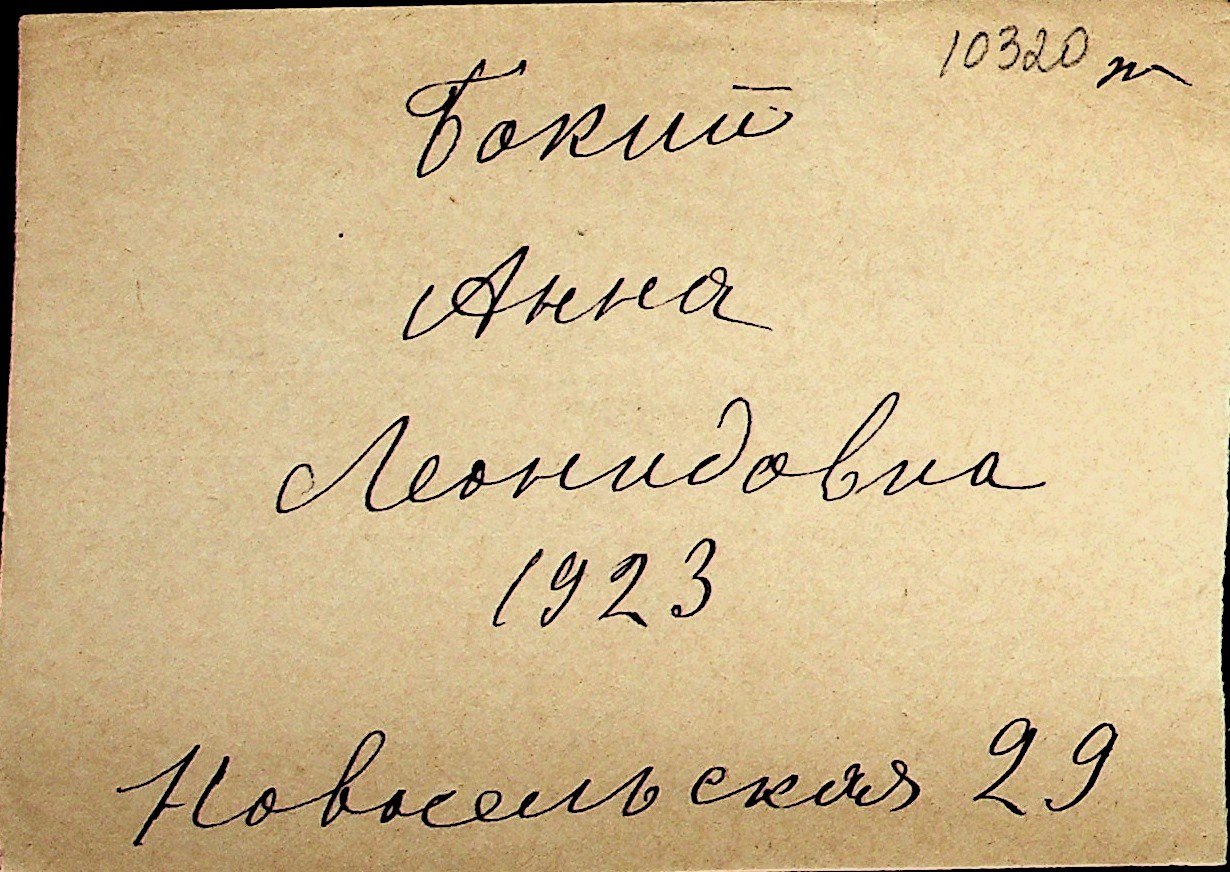 10320 т
Бокий
Анна
Леонидовна
1923
Новосельская 29